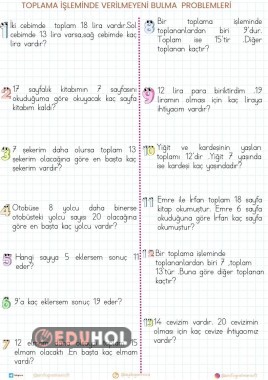 TOPLAMA İŞLEMİNDE VERİLMEYENİ BULMA PROBLEMLERİ
1 İki cebimde toplam 18 lira vardır.Sol
cebimde 13 lira varsa,sağ cebimde kaç
lira vardır?
2 17 sayfalık kitabımın 7 sayfasını
okuduğuma göre okuyacak kaç sayfa
kitabım kaldı?
3 7 şekerim daha olursa toplam 13
şekerim olacağına göre en başta kaç
şekerim vardır?
4 Otobüse 8 yolcu daha binerse
otobüsteki yolcu sayısı 20 olacağına
göre kaç yolcu vardır?
5 Hangi sayıya 5 eklersem sonuç 11
eder?
6 9'a kaç eklersem sonuç 19 eder?
7 12
elmam olacaktı. En başta kaç elmam
vardı?
8 Bir toplama işleminde
toplananlardan biri 9'dur.
Toplam ise 15'tir .Diğer
toplanan kaçtır?
9 12 lira para biriktirdim .19
liramın olması için kaç liraya
ihtiyacım vardır?
10 Yiğit ve kardeşinin yaşları
toplamı 12'dir .Yiğit 7 yaşında
ise kardeşi kaç yaşındadır?
11 Emre ile İrfan toplam 18 sayfa
kitap okumuştur. Emre 6 sayfa
okuduğuna göre İrfan kaç sayfa
okumuştur?
12 Bir toplama işleminde
toplananlardan biri 7 ,toplam
13'tür .Buna göre diğer toplanan
kaçtır?
13 14 cevizim vardır. 20 cevizimin
olması için kaç cevize ihtiyacımız
vardır?
EDUHOL